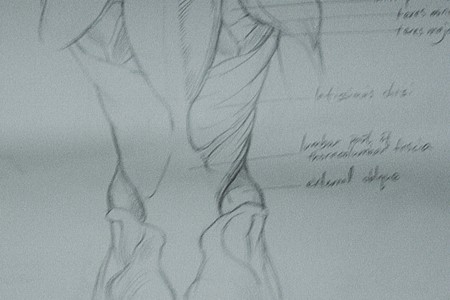 teres min
teres maj
latissimus dorsi
lumbar
thoracolumbar fascia
external oblique